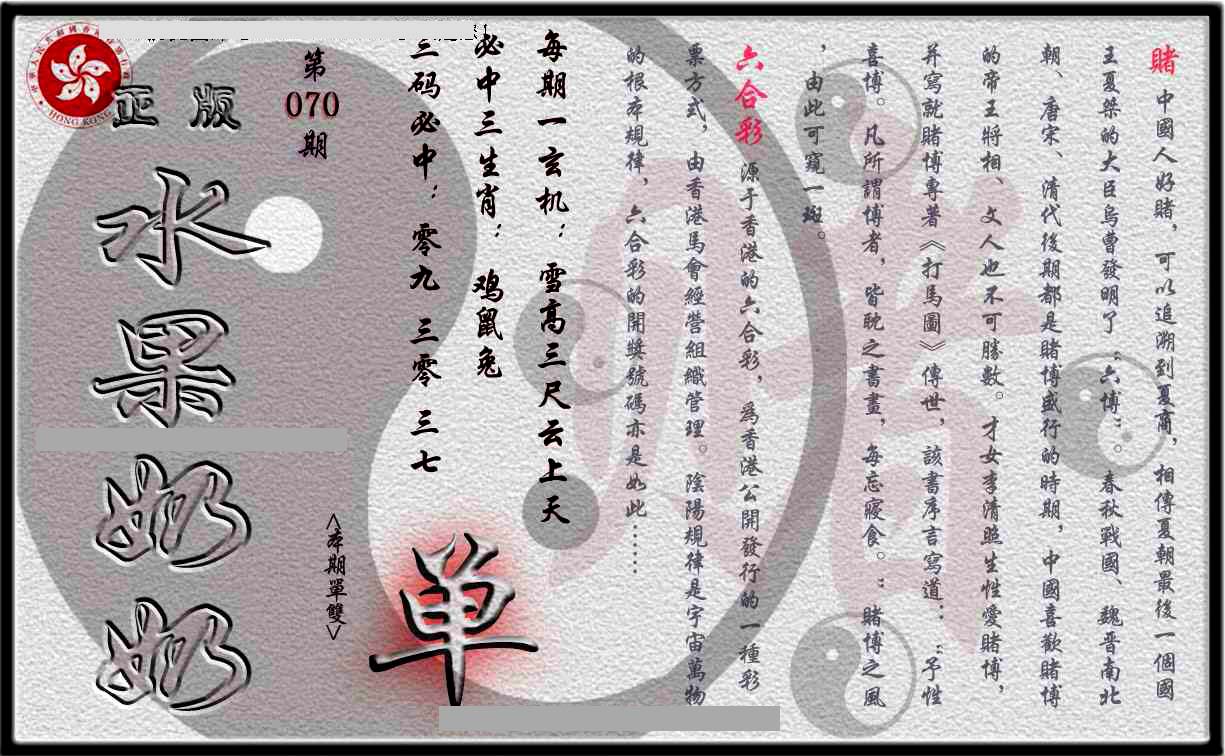 賭 中國人好賭，可以追溯到夏商，相傳夏朝最後一個國
王夏桀的大臣烏曹發明了“六博”。春秋戰國、魏晋南北
朝、唐宋、清代後期都是賭博盛行的時期，中國喜歡賭博
的帝王將相、文人也不可勝數。才女李清照生性愛賭博，
并寫就賭博專著《打馬圖》傳世，該書序言寫道：“予性
喜博。凡所謂博者，皆耽之書畫，每忘寢食。”賭博之風
，由此可窺一斑。
六合彩 源于香港的六合彩，爲香港公開發行的一種彩
票方式，由香港馬會經營組織管理。陰陽規律是宇宙萬物
的根本規律，六合彩的開獎號碼亦是如此……
每期一玄机：雪高三尺云上天
必中三生肖：鸡鼠兔
三码必中：零九 三零 三七
单
<本期單雙>
第
070
期
正版
水果奶奶
HONG KONG